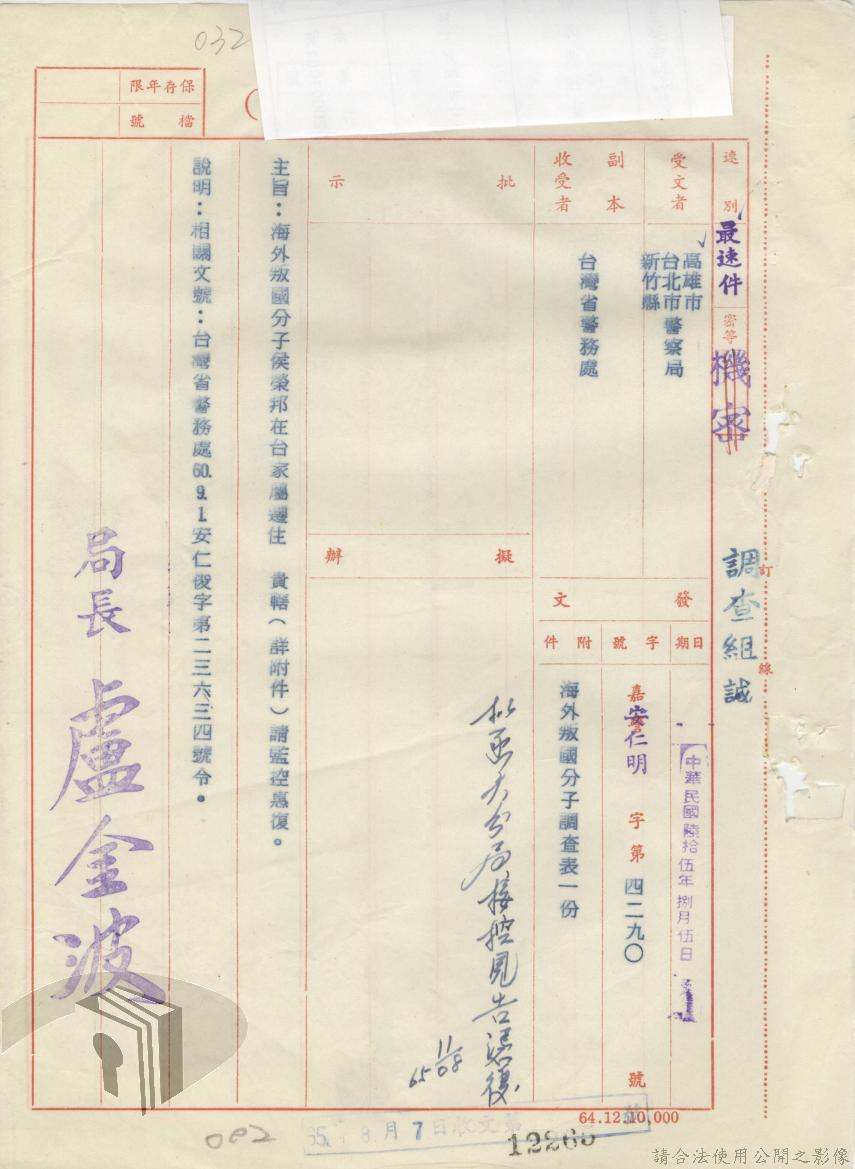 032
保存年限
檔號
速別
最速件
密等
機密
調查組誠
訂
線
受文者
高雄市
台北市警察局
新竹縣
副本
收受者
台灣省警務處
批示
擬辦
發文
日期
中華民國陸拾伍年捌月伍日
字號
嘉警
安仁明
字第
四二九〇
號
附件
海外叛國分子調查表一份
大分局
見告
11/08
65
主旨：海外叛國分子侯榮邦在台家屬遷住 貴轄（詳附件）請監控惠復。
說明：相關文號：台灣省警務處60.9.1.安仁俊字第二三六三四號令。
局長 盧金波
64.12.10,000
65. 8月7日收文第
12266
082
請合法使用公開之影像